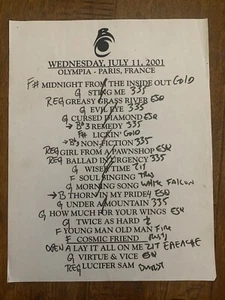 WEDNESDAY, JULY 11, 2001
OLYMPIA - PARIS, FRANCE
F# MIDNIGHT FROM THE INSIDE OUT GOLD
G STING ME 335
REG GREASY GRASS RIVER ESQ
G EVIL EYE 335
G CURSED DIAMOND ESQ
→ B♭ 3 REMEDY 335
→ F# LICKIN' GOLD
→ B♭ 3 NON-FICTION 335
REG GIRL FROM A PAWNSHOP ESQ
REG BALLAD IN URGENCY 335
G WISER TIME ZIT
F SOUL SINGING
G MORNING SONG WHITE FALCON
→ B THORN IN MY PRIDE 4 ESQ
G UNDER A MOUNTAIN 335
G HOW MUCH FOR YOUR WINGS ESQ
G TWICE AS HARD
F YOUNG MAN OLD MAN FIRE
F COSMIC FRIEND
OPEN A LAY IT ALL ON ME ZIT
G VIRTUE & VICE ESQ
REG LUCIFER SAM